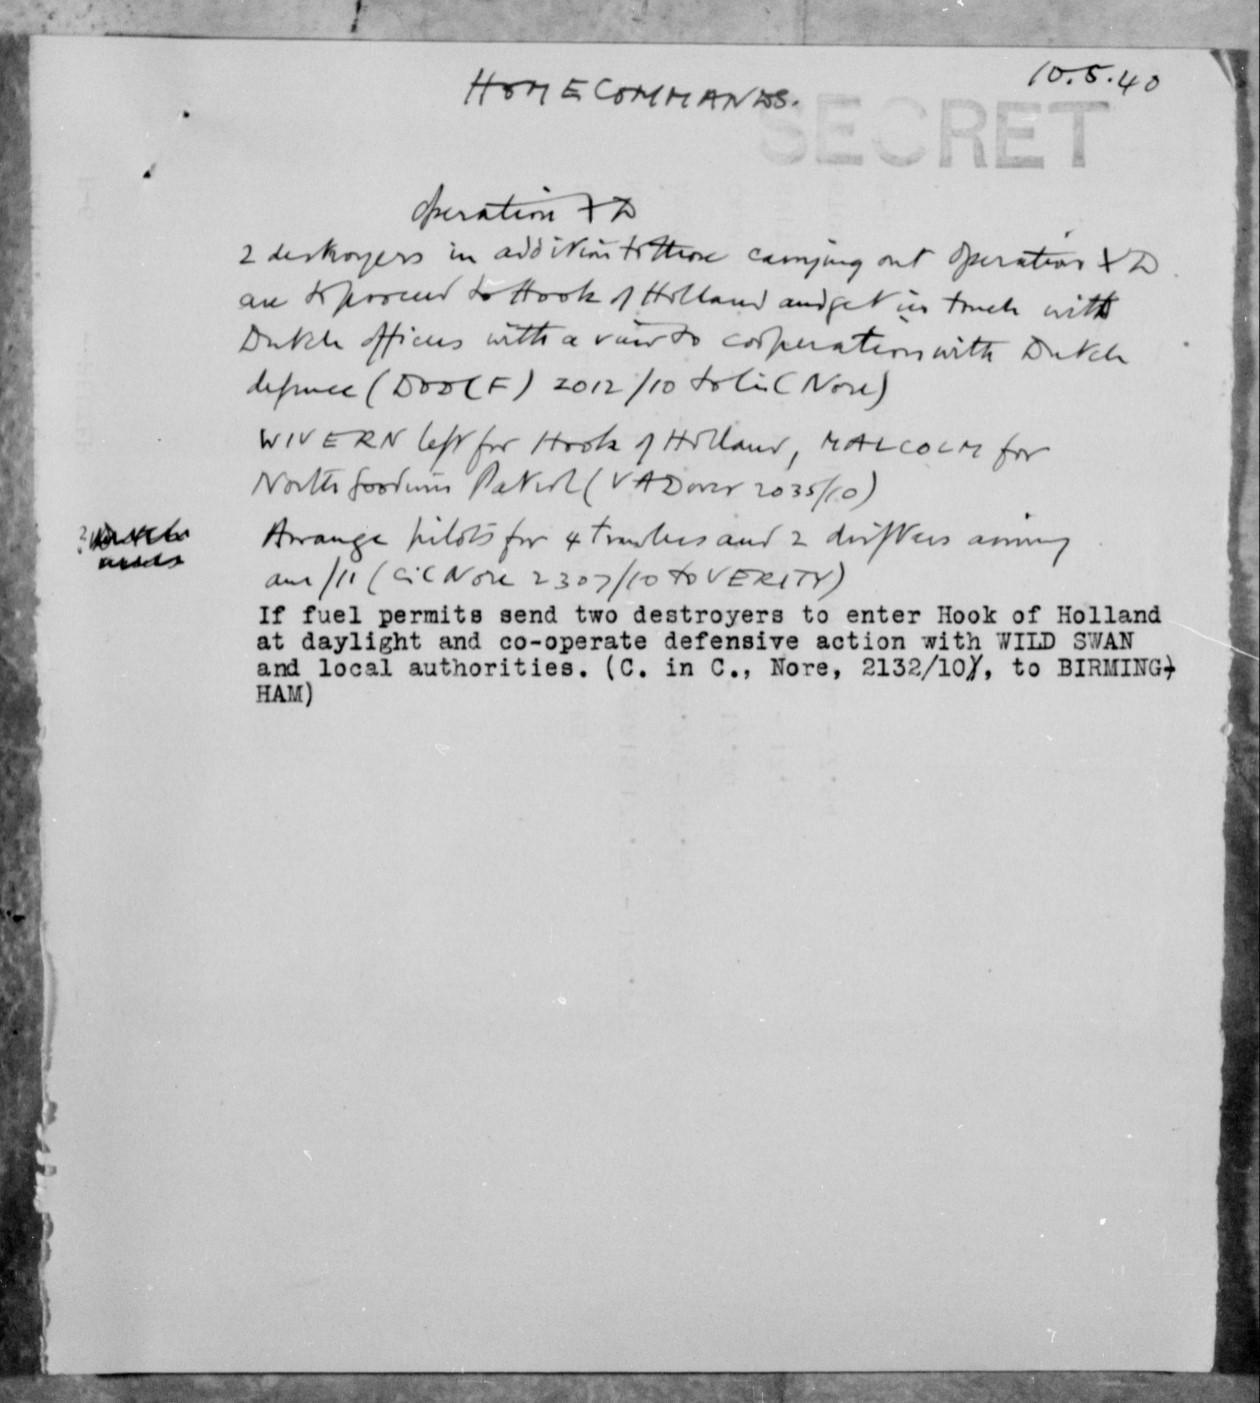 10.5.40
HOME COMMANDS.
SECRET
Operation XD
2 destroyers in addition to those carrying out Operation XD
are to proceed to Hook of Holland and get in touch with
Dutch officers with a view to cooperation with Dutch
defence (DOD(F) 2012/10 to CinC Nore)
WIVERN left for Hook of Holland, MALCOLM for
North Goodwin Patrol (VADover 2035/10)
Arrange pilots for 4 trawlers and 2 drifters arriving
am/11 (CinC Nore 2307/10 to VERITY)
If fuel permits send two destroyers to enter Hook of Holland
at daylight and co-operate defensive action with WILD SWAN
and local authorities. (C. in C., Nore, 2132/10), to BIRMING-
HAM)